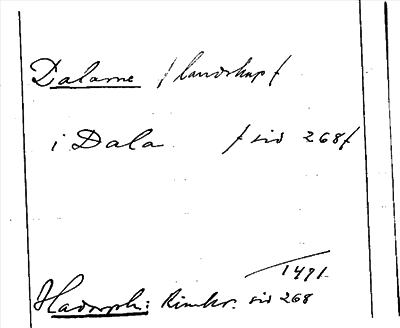 Dalarne /landskap/
i Dala /sid 268/
1491.
Hadorph: Rimkr. sid 268